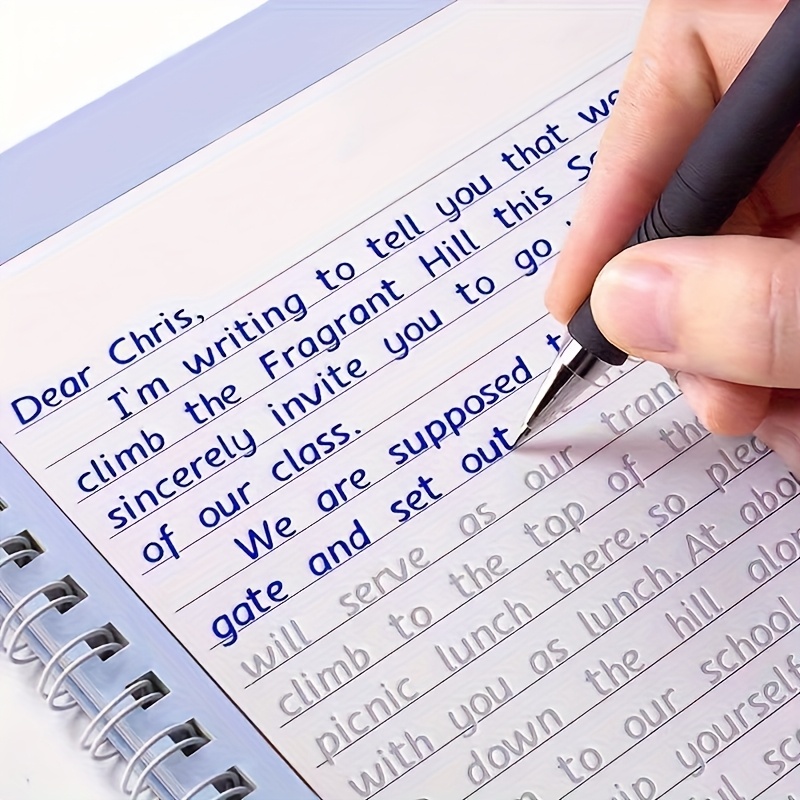 Dear Chris,
I'm writing to tell you that we
climb the Fragrant Hill this
sincerely invite you to go
of our class.
We are supposed
gate and set out
will serve as our
climb to the top of
picnic lunch there, so
with you as lunch. At
down the hill
to our school
yourself